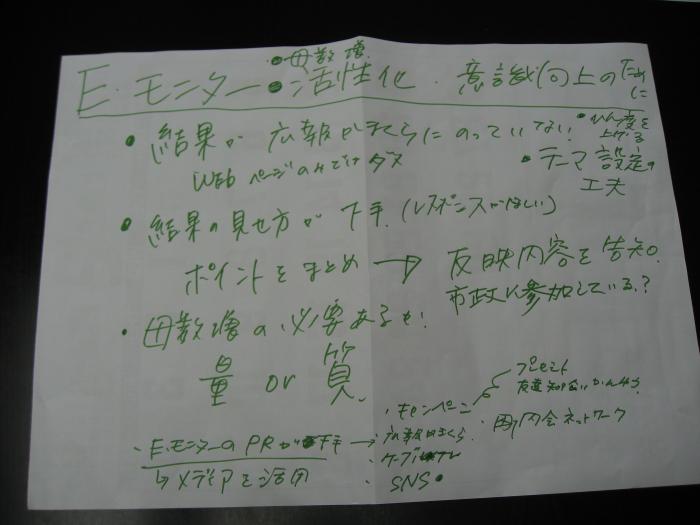 ・母数増
E.モニター・活性化・意識向上のために
・結果が広報かまくらにのっていない!
WEBページのみではダメ
・ひん度を
上げる
・テーマ設定の
工夫
・結果の見せ方が下手.(レスポンスがほしい)
ポイントをまとめ → 反映内容を告知。
市政に参加している?
・母数増の必要あるか!
量 or 質.
・E.モニターのPRが下手 →
↳メディアを活用
・キャンペーン
プレゼント
友達知合い
・広報かまくら
・ケーブルテレ
・SNS
・町内会ネットワーク